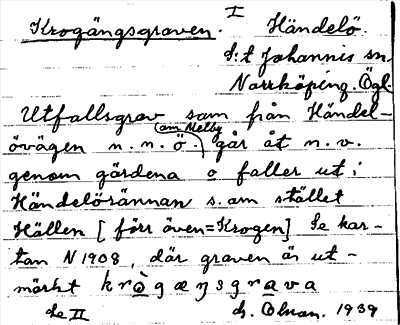 Krogängsgraven. I Händelö.
S:t Johannis sn.
Norrköping. Ögl.
Utfallsgrav som från Händel-
(am Melby)
övägen n.n.ö. går åt n.v.
genom gärdena o faller ut i
Händelörännan s.om stället
Hällen [förr även=Krogen] Se kar-
tan N 1908, där graven är ut-
märkt krògæŋsgrava
de II G. Olson. 1939